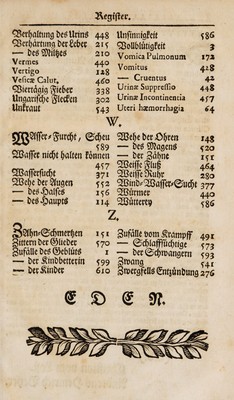 Register.
Verhaltung des Urins 448
Verhärtung der Leber 215
— des Miltzes 210
Vermes 440
Vertigo 128
Vesicæ Calul. 460
Viertägig Fieber 338
Ungarische Flecken 302
Unkraut 543
Unsinnigkeit 586
Vollblütigkeit 3
Vomica Pulmonum 172
Vomitus 428
— Cruentus 42
Urinæ Suppressio 448
Urinæ Incontinentia 457
Uteri hæmorrhagia 64
W.
Wasser-Furcht, Scheu
589
Wasser nicht halten können
457
Wassersucht 371
Wehe der Augen 552
— des Halses 156
— des Haupts 114
Wehe der Ohren 148
— des Magens 520
— der Zähne 151
Weisse Fluß 464
Weisse Ruhr 280
Wind-Wasser-Sucht 377
Würmer 440
Wütterey 586
Z.
Zahn-Schmertzen 151
Zittern der Glieder 570
Zufälle des Geblüts 1
— der Kindbetterin 599
— der Kinder 610
Zufälle vom Krampff 491
— Schlafffüchtige 573
— der Schwangern 593
Zwang 541
Zwergfells Entzündung 276
E D E N.